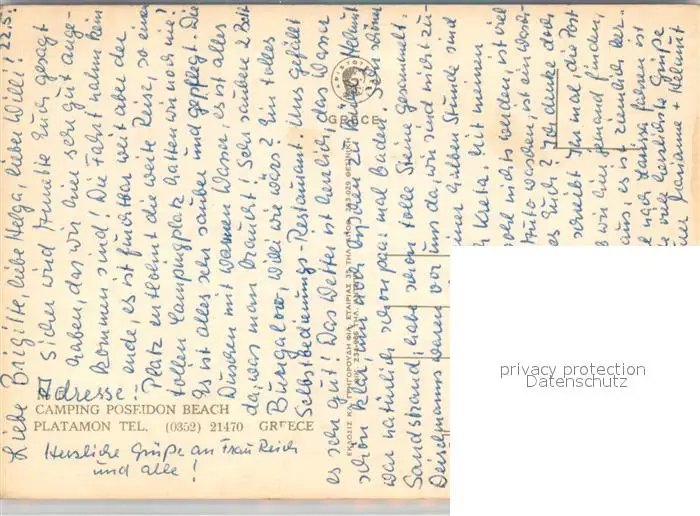 Liebe Brigitte, liebe Helga, lieber Willi! 22.5.
Sicher wird Mutti Euch gesagt
haben, das wir hier sehr gut ange-
kommen sind! Die Fahrt nahm kein
ende, es ist furchtbar weit aber der
Platz entlohnt die weite Reise, so einen
tollen Campingplatz hatten wir noch nie!
Es ist alles sehr sauber und gepflegt. Die
Duschen mit warmen Wasser, es ist alles
da, was man braucht! Sehr sauber 2 Bett
Bungalow, Willi wie wärs? Ein tolles
Selbstbedienungs-Restaurant! Uns gefällt
es sehr gut! Das Wetter ist herrlich, das Wasser
schön klar, nur noch bißchen zu kühl. Helmut
war natürlich schon paar mal baden. Sehr schöner
Sandstrand, habe schon tolle Steine gesammelt.
waren vor uns da, wir sind nicht zu-
einer halben Stunde sind
Kreta. Mit meinen
wohl nichts werden, ist viel
Auto
es Euch? Ich denke doch
schreibt Ihr mal, die Post
wir hier jemand finden,
aus, es ist ziemlich
nach Larissa fahren ist
viele herzlichste Grüße
Marianne + Helmut
Adresse:
CAMPING POSEIDON BEACH
PLATAMON TEL. (0352) 21470 GREECE
Herzliche Grüße an Frau Reich
und alle!
GREECE
privacy protection
Datenschutz